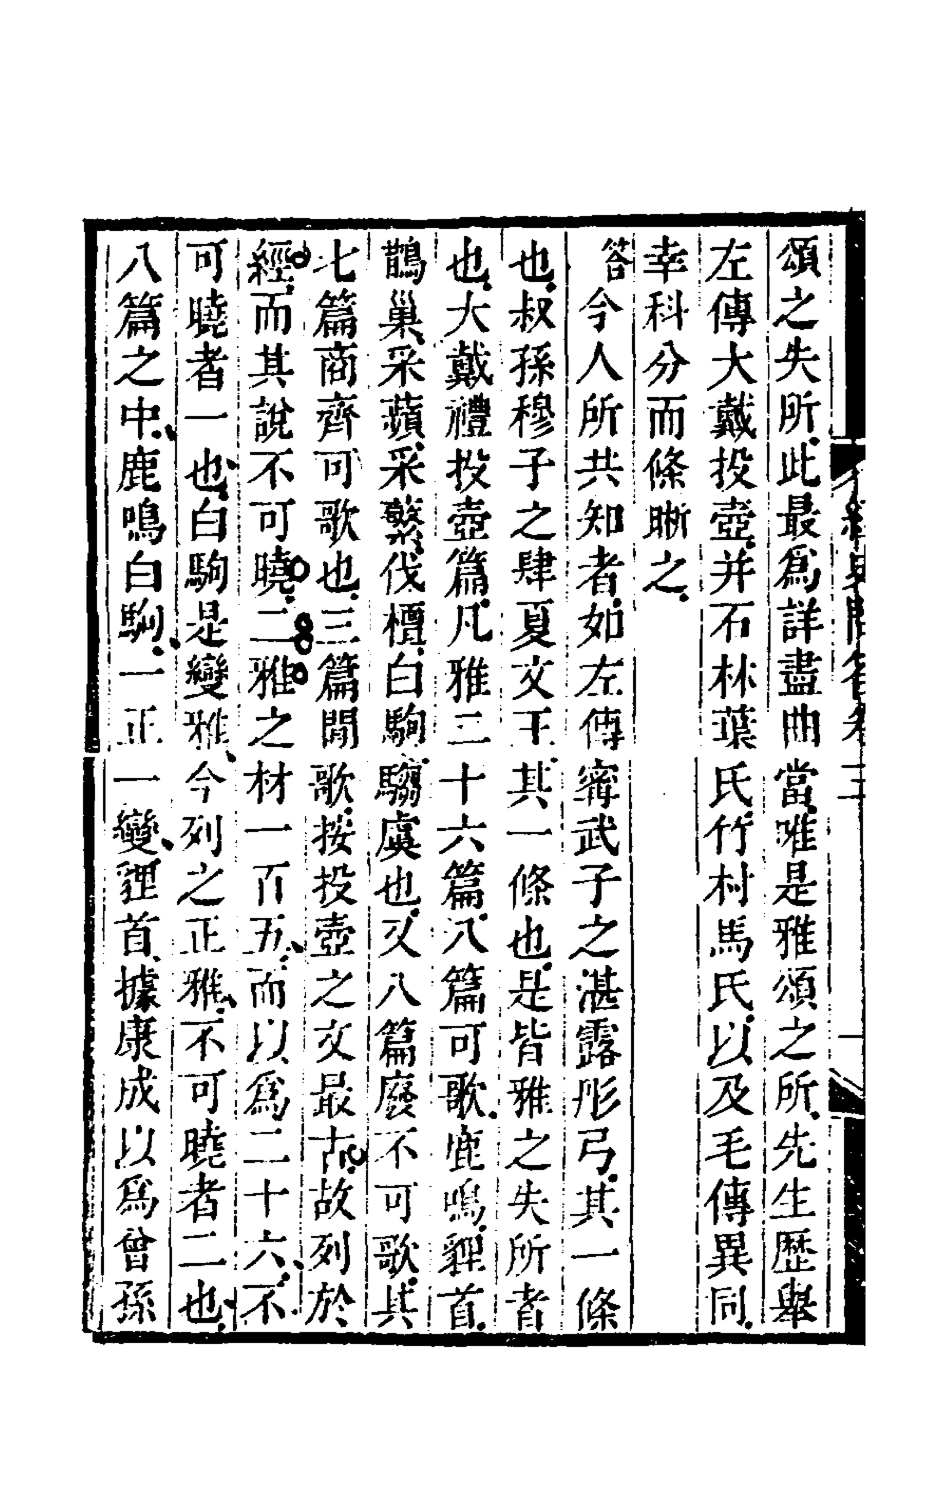 頌之失所此最爲詳盡曲當唯是雅頌之所先生歷舉
左傳大戴投壺并石林葉氏竹村馬氏以及毛傳異同
幸科分而條晰之
答今人所共知者如左傳甯武子之湛露彤弓其一條
也叔孫穆子之肆夏文王其一條也是皆雅之失所者
也大戴禮投壺篇凡雅二十六篇八篇可歌鹿鳴貍首
鵲巢采蘋采蘩伐檀白駒騶虞也又八篇廢不可歌其
七篇商齊可歌也三篇閒歌按投壺之文最古故列於
經而其說不可曉二雅之材一百五而以爲二十六不
可曉者一也白駒是變雅今列之正雅不可曉者二也
八篇之中鹿鳴白駒一正一變貍首據康成以爲曾孫
經史問答卷三